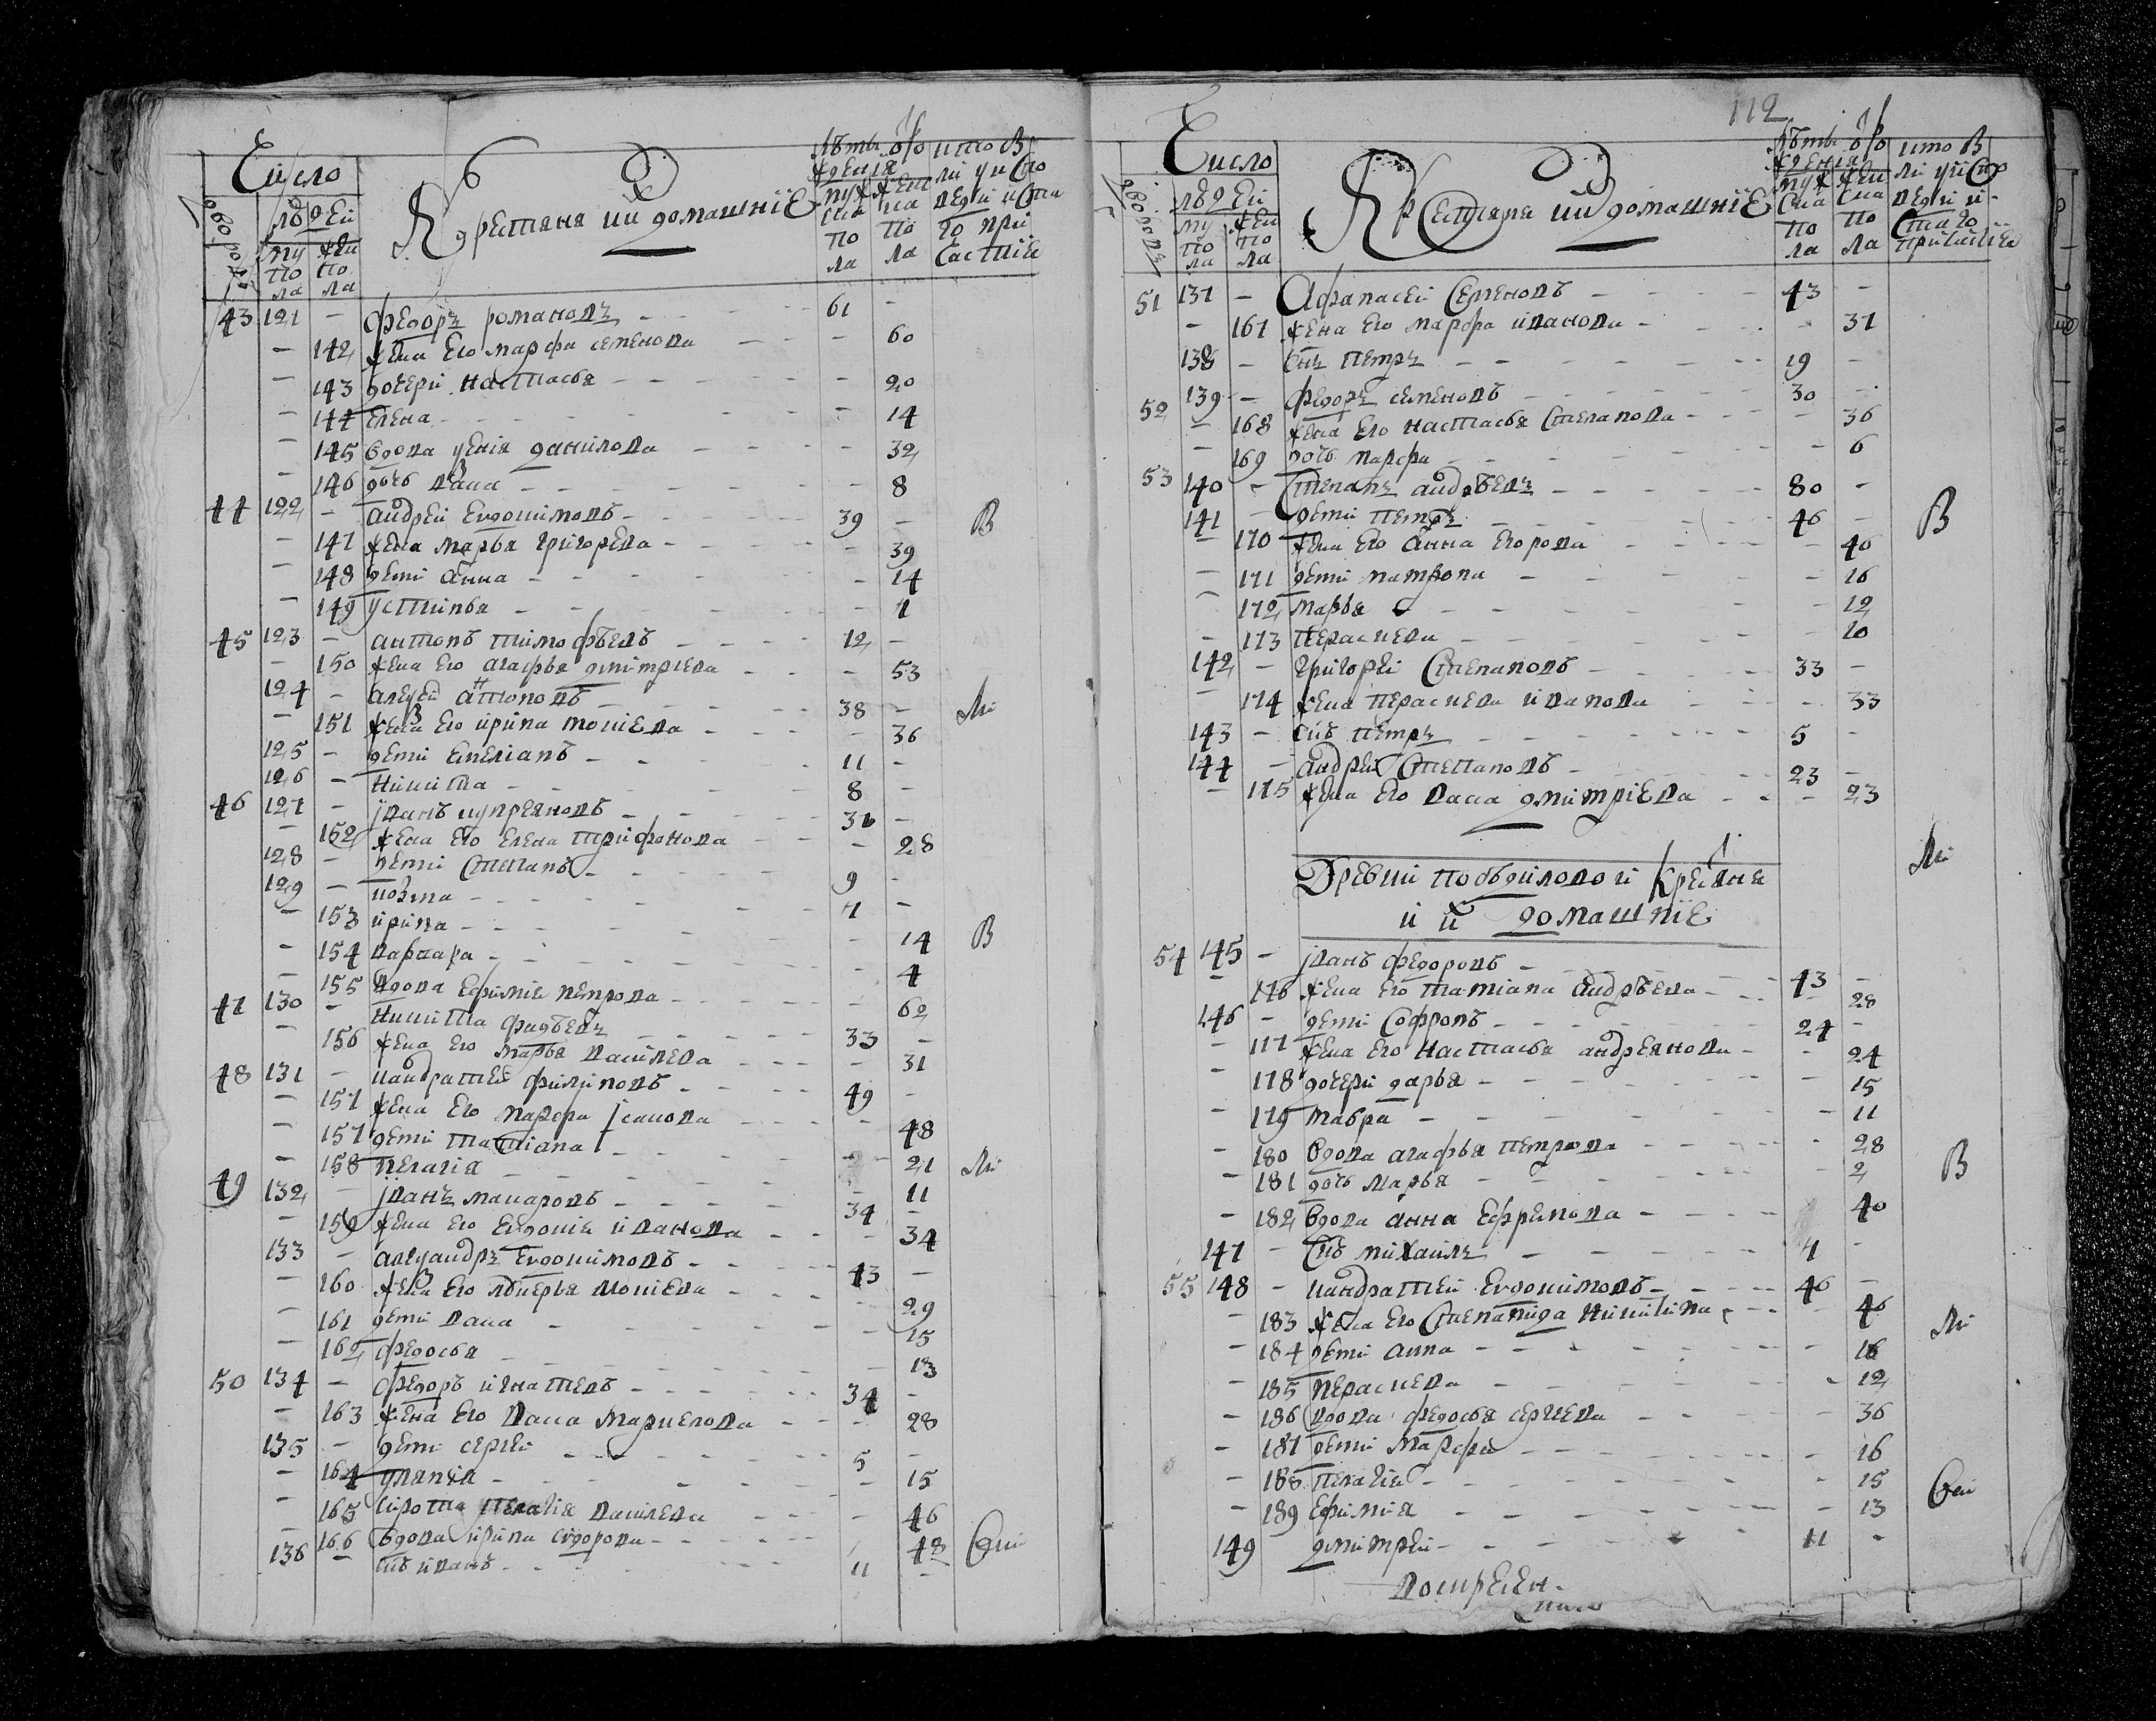 Число
дворовъ
людеи
му по ла
жен по ла
Крестяня ии домашнiе
Лѣтъ рожденiя
муж ска по ла
жен ска по ла
кто въ ли у ис по веди и ста го при частiя
43 121 — Федоръ романовъ 61 —
— 142 жена его марфа семенова — 60
— 143 дочери настасья — 20
— 144 елена — 14
— 145 вдова ксенiя данилова — 32
— 146 дочь васа — 8
44 122 — андреи евдокимовъ 39 — В
— 147 жена марья григорева — 39
— 148 дети анна — 14
— 149 устинья — 7
45 123 — антонъ тимофѣевъ 72 —
— 150 жена его агафья дмитриева — 53
124 — алексеи антоновъ 38 — Ли
— 151 жена его ирина мокiева — 36
125 — дети емелiанъ 11 —
126 — никита 8 —
46 127 — iванъ куприяновъ 31 —
— 152 жена его елена трифанова — 28
128 — дети степанъ 9 —
129 — козма 7 —
— 153 ирина — 14 В
— 154 варвара — 4
— 155 вдова ефимiя петрова — 62
47 130 — никита фадѣевъ 33 —
— 156 жена его марья василева — 31
48 131 — кандратеи филиповъ 49 —
— 157 жена его марфа iсакова — 48
— 157 дети татиана — 21 Ли
— 158 пелагiя — 11
49 132 — iванъ макаровъ 34 —
— 159 жена его евдокiя иванова — 34
133 — александръ евдокимовъ 43 —
— 160 жена его лукерья мокiева — 29
— 161 дети васа — 15
— 162 федосья — 13
50 134 — федоръ игнатевъ 34 —
— 163 жена его васа маркелова — 28
135 — дети сергеи 5 —
— 164 улания — 15
— 165 сирота пелагiя василева — 46
— 166 вдова ирина сидорова — 48 Сии
136 — сынъ иванъ 11 —
112
Число
дворовъ
людеи
му по ла
жен по ла
Крестяня ии домашнiе
Лѣтъ рожденiя
муж ска по ла
жен ска по ла
кто въ ли у ис по веди и стаго причастiя
51 137 — Афанасеи Семеновъ 43 —
— 167 жена его марфа иванова — 37
138 — сынъ петръ 19 —
52 139 — федоръ семеновъ 30 —
— 168 жена его настасья степанова — 36
— 169 дочь марфа — 6
53 140 — Степанъ андрѣевъ 80 —
141 — дети петръ 46 — В
— 170 жена его анна егорова — 46
— 171 дети матрона — 16
— 172 марья — 12
— 173 параскева — 10
142 — григореи Степановъ 33 —
— 174 жена параскева иванова — 33
143 — сынъ петръ 5 —
144 — андреи Степановъ 23 —
— 175 жена его васа дмитрiева — 23
Древни Крестяня Ли
и и домашнiе
54 145 — iванъ федоровъ 43 —
— 176 жена его татiана андрѣева — 28
146 — дети Софронъ 24 —
— 177 жена его настасья андреянова — 24
— 178 дочери дарья — 15
— 179 мавра — 11
— 180 вдова агафья петрова — 28
— 181 дочь марья — 2 В
— 182 вдова анна ефремова — 40
147 — сынъ михаилъ 7 —
55 148 — кандратеи евдокимовъ 46 —
— 183 жена его степанида никитина — 46 Ли
— 184 дети анна — 18
— 185 параскева — 12
— 186 вдова федосья сергеева — 36
— 187 дети марфа — 16
— 188 пелагiя — 15
— 189 ефимия — 13 Сеи
149 дмитреи 11 —